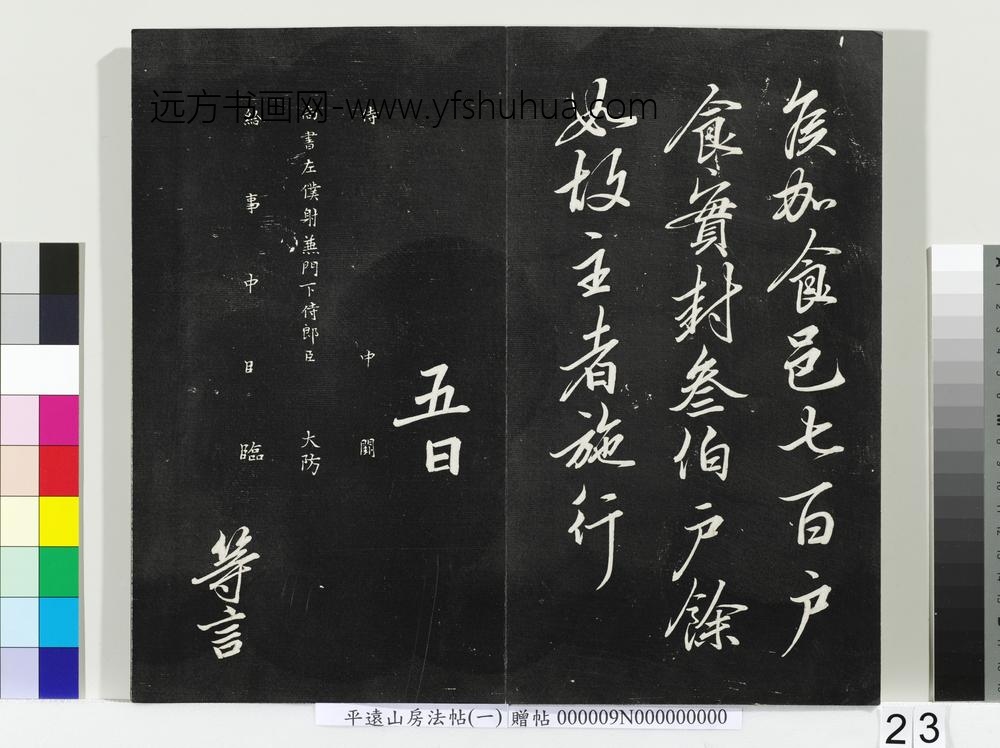 侯加食邑七百户
食實封叁伯户餘
如故主者施行
五日
侍 中 闕
尚書左僕射兼門下侍郎臣 大防
給 事 中 臣 臨
等言
远方书画网-www.yfshuhua.com
平遠山房法帖(一) 贈帖 000009N000000000
23